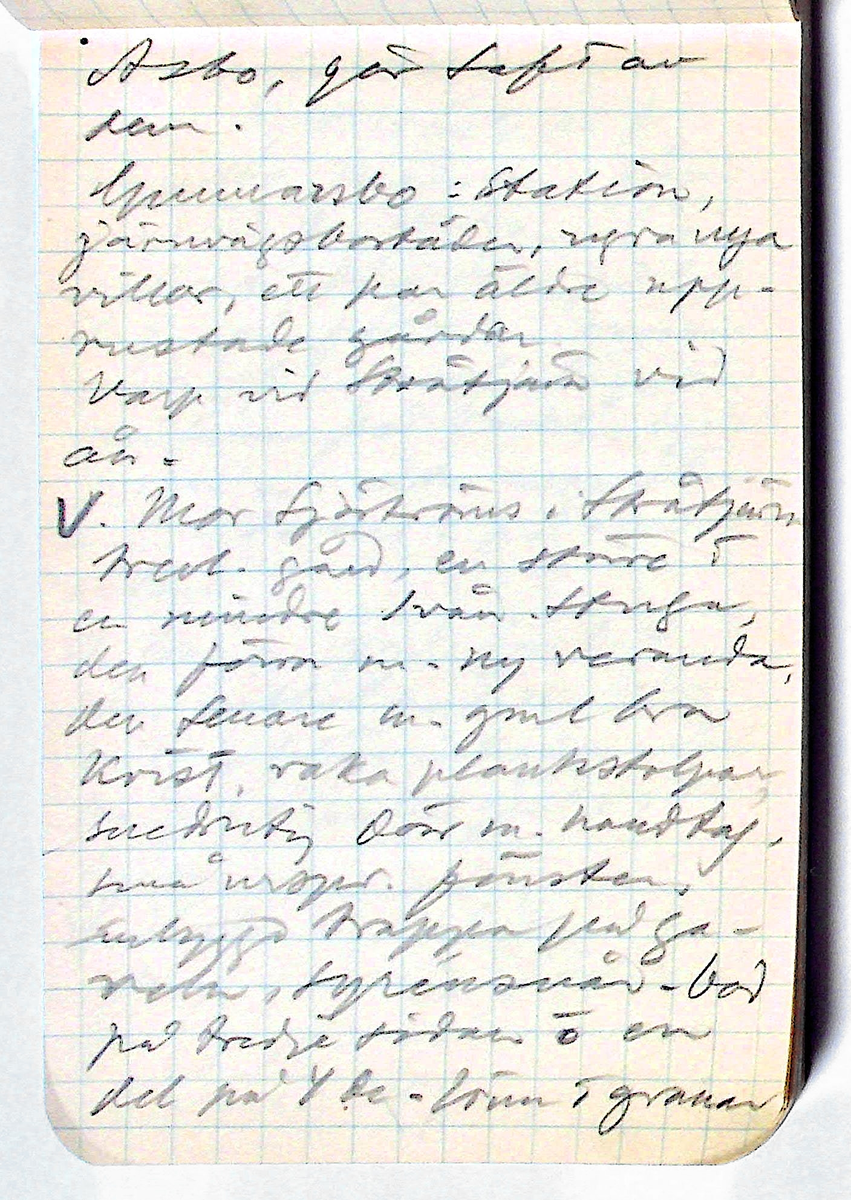 Asbo, gör saft av
dem.
Gunnarsbo: Station,
järnvägsbostäder, ngra nya
villor, ett par äldre upp-
rustade gårdar
Varp vid Skråtjärn vid
ån.
V. Mor Sjöströms i Skråtjärn
gård, en större o
en mindre tvåv. stuga,
den förra m. ny veranda,
den senare m. gml bra
kvist, raka plankstolpar,
snedrutig dörr m. handtag,
små urspr. fönster,
inbyggd trappa på ga-
veln, syrensnår. Bod
på tredje sidan o en
del på 4 de. Lönn o granar